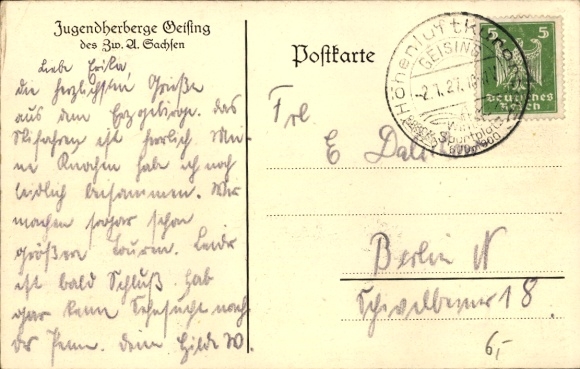 Jugendherberge Geising
des Zw. A. Sachsen
Liebe Erika,
die herzlichsten Grüße
aus dem Erzgebirge. das
Skifahren ist herrlich Mei-
ne Knochen hab ich noch
leidlich beisammen. Wir
machen sogar schon
größere Touren. Leider
ist bald Schluß. hab
gar keine Sehnsucht nach
der Penne. deine Hilde W.
Postkarte
Höhenluftkurort
GEISING
-2.1.27.
Sportplatz
5 5
Deutsches
Reich
Frl.
E
Berlin N
18.
6,-